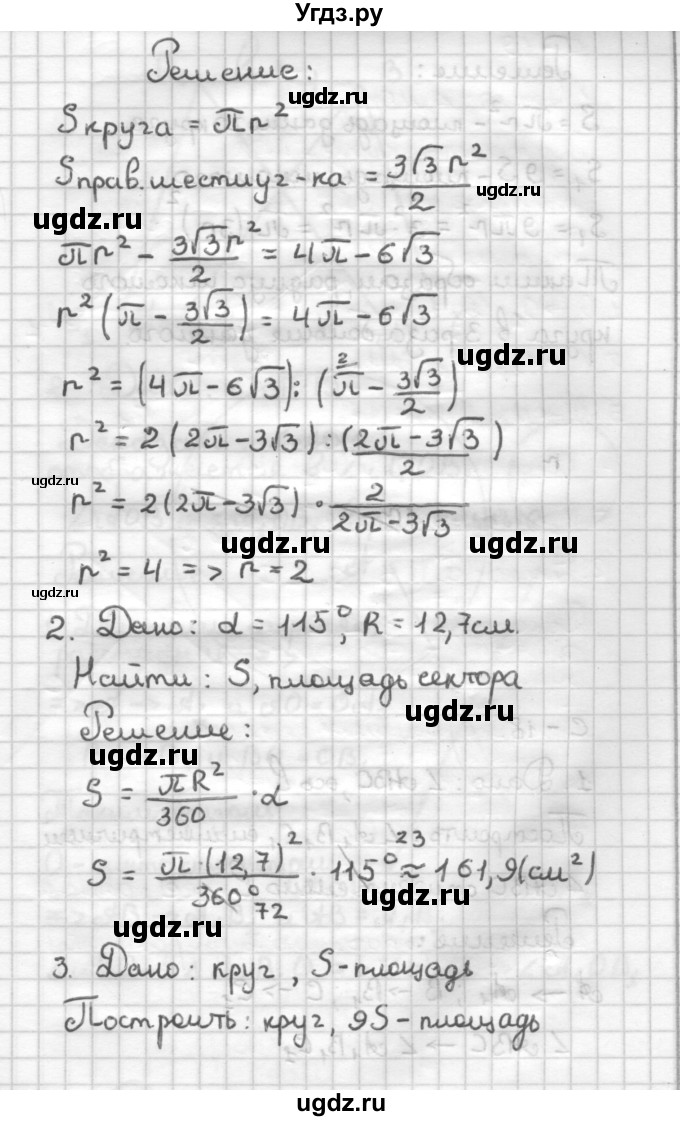 Угдз.ру
Решение:
ugdz.ru
S круга = πr²
S прав. шестиуг-ка = 3√3 r²/2
ugdz.ru
ugdz.ru
πr² - 3√3r²/2 = 4π - 6√3
r²(π - 3√3/2) = 4π - 6√3
ugdz.ru
r² = (4π - 6√3) : (²π - 3√3/2)
r² = 2(2π - 3√3) : (2π - 3√3/2)
ugdz.ru
r² = 2(2π - 3√3) · 2/2π - 3√3
ugdz.ru
ugdz.ru
r² = 4 => r = 2
ugdz.ru
2. Дано: α = 115°, R = 12,7см.
Найти: S, площадь сектора
ugdz.ru
Решение:
ugdz.ru
S = πR²/360 · α
S = π·(12,7)²/360° 72 · 115° 23 ≈ 161,9(см²)
ugdz.ru
ugdz.ru
3. Дано: круг, S-площадь
Построить: круг, 9S-площадь
ugdz.ru